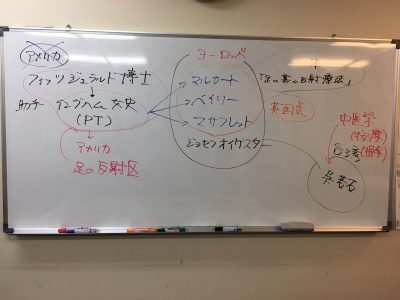 アメリカ
フィッツジェラルド博士
助手
イングハム女史
(PT)
アメリカ
足の反射区
ヨーロッパ
マルカート
ベイリー
マサフレット
ジョセフオイグスター
英国式
本
反射療法」
中医学
台湾
呉若石